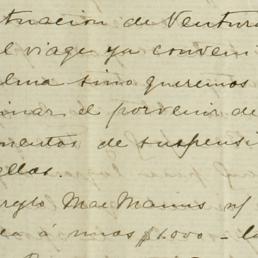 tuación de Ventura
l viage ya conveni
elma sino queremos
ionar el porvenir de
mentos de suspensi
ellas.
reglo Mac Manus y
ea á unos $1.000 - la